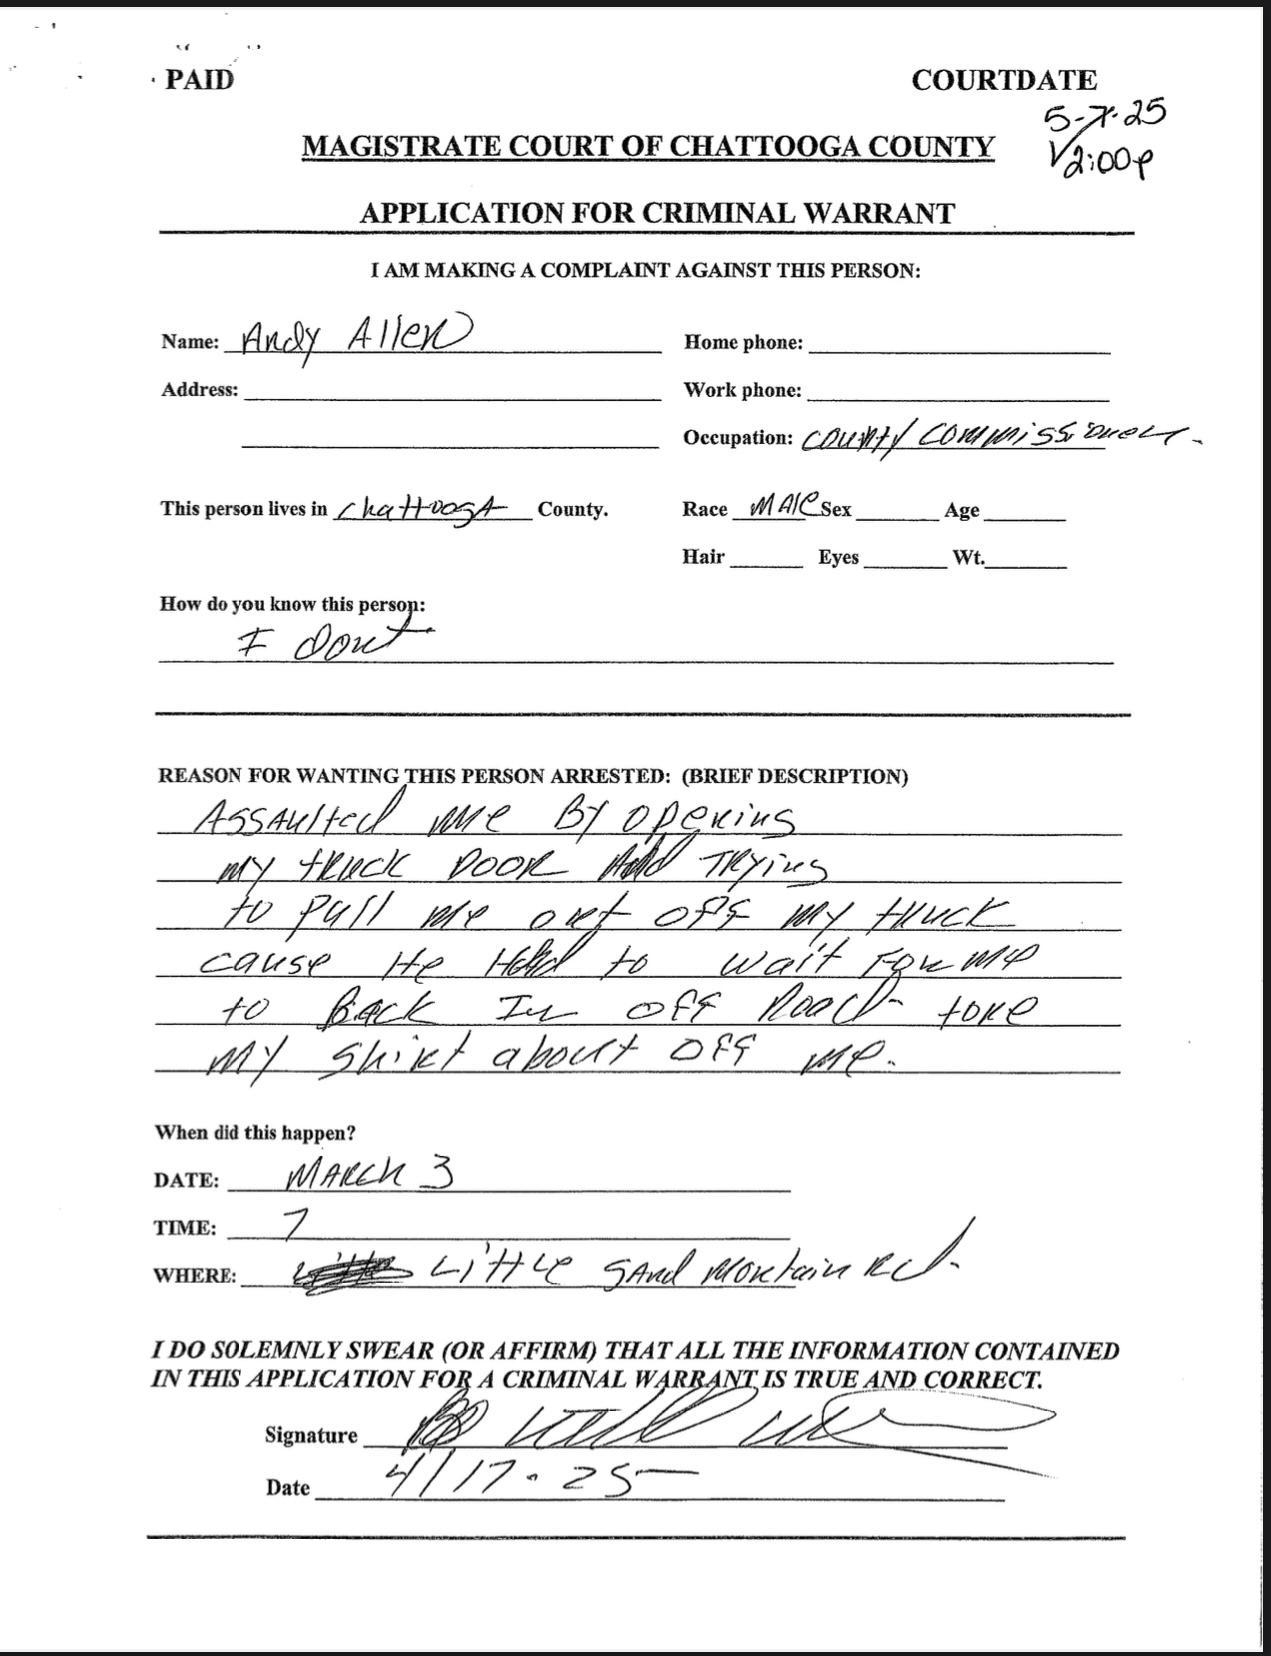 PAID
COURTDATE
5-7-25
2:00p
MAGISTRATE COURT OF CHATTOOGA COUNTY
APPLICATION FOR CRIMINAL WARRANT
I AM MAKING A COMPLAINT AGAINST THIS PERSON:
Name: Andy Allen Home phone:
Address: Work phone:
Occupation: county commissioner
This person lives in chattooga County. Race MAle Sex Age
Hair Eyes Wt.
How do you know this person:
I dont
REASON FOR WANTING THIS PERSON ARRESTED: (BRIEF DESCRIPTION)
ASSAulted me By opening
my truck DOOR And TRying
to pull me out off my truck
cause He Had to wait For me
to Back In off Road tore
my shirt about off me.
When did this happen?
DATE: MARCh 3
TIME: 7
WHERE: Little SAnd Mountain Rd.
I DO SOLEMNLY SWEAR (OR AFFIRM) THAT ALL THE INFORMATION CONTAINED
IN THIS APPLICATION FOR A CRIMINAL WARRANT IS TRUE AND CORRECT.
Signature
Date 4/17-25